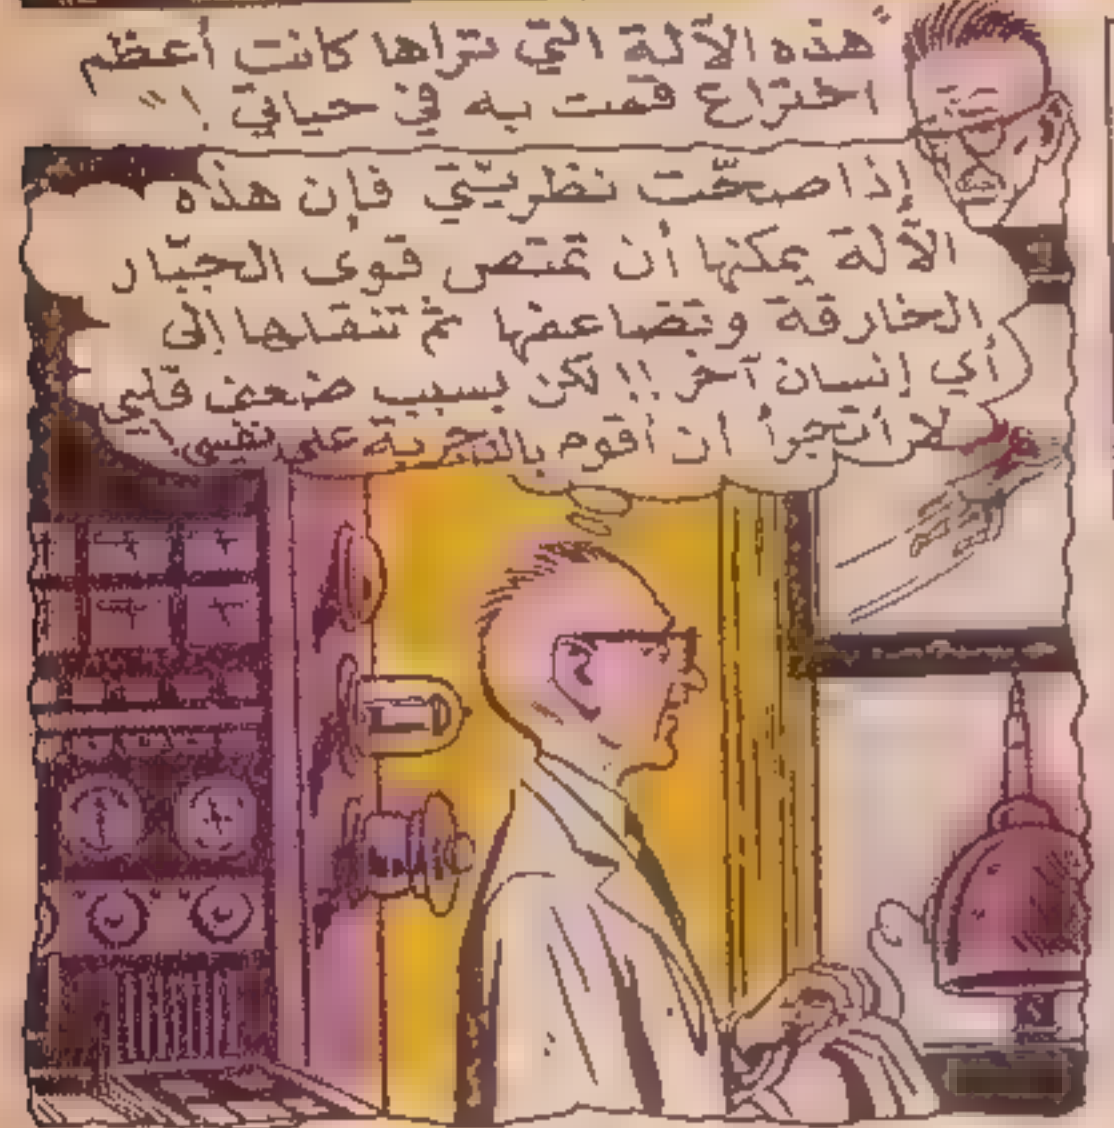 "هذه الآلة التي تراها كانت أعظم
اختراع قمت به في حياتي !"
إذا صحّت نظريتي فإن هذه
الآلة يمكنها أن تمتص قوى الجبّار
الخارقة وتضاعفها ثم تنقلها إلى
أي إنسان آخر !! لكن بسبب ضعف قلبي
لا أتجرأ أن أقوم بالتجربة على نفسي !